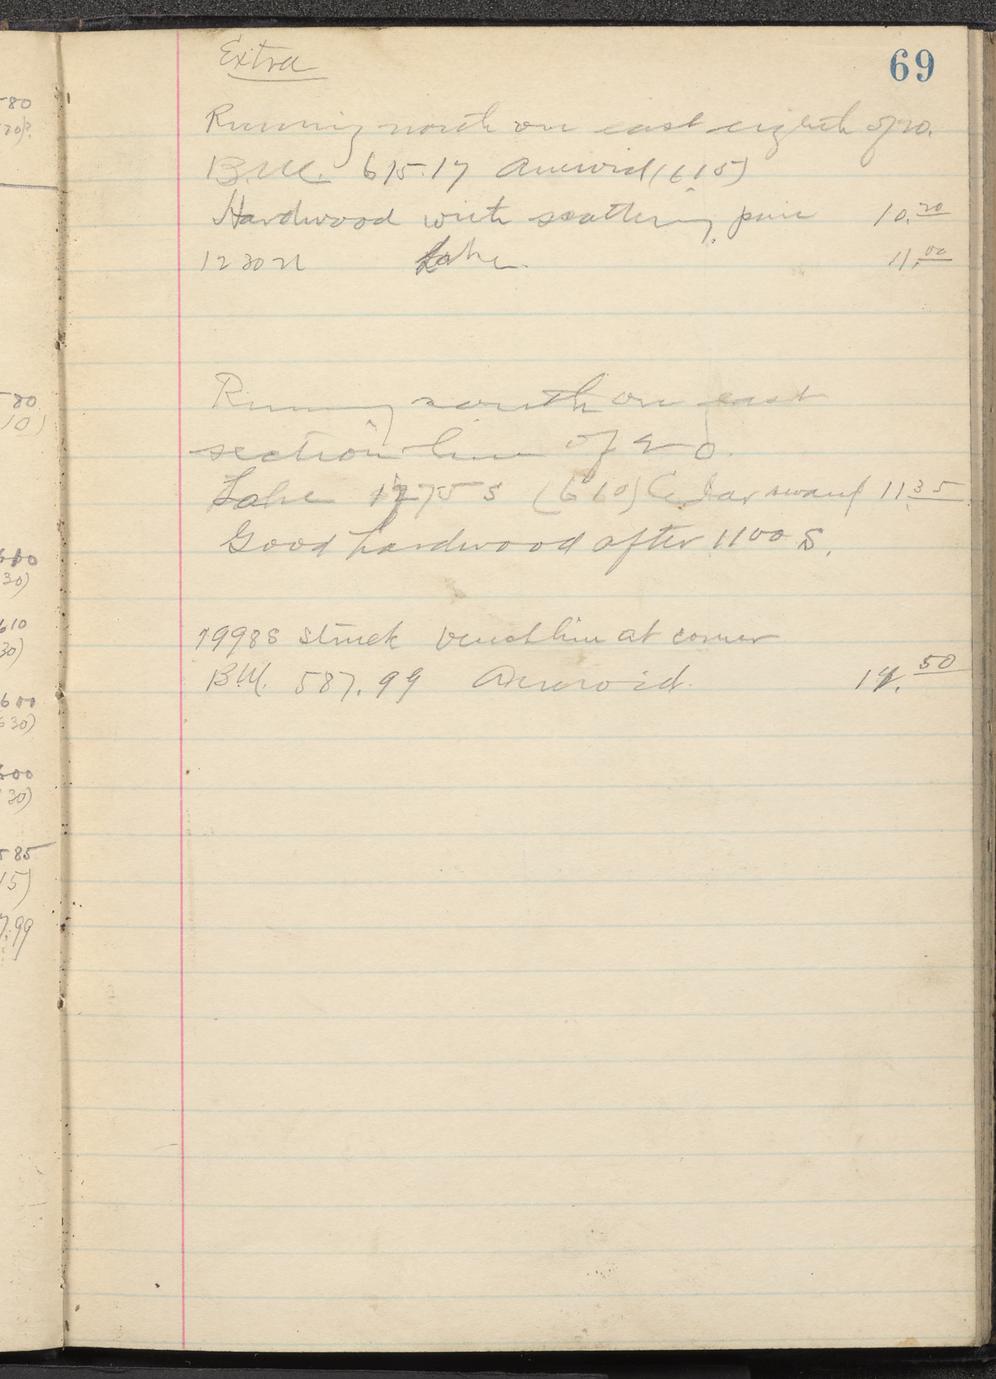 Extra
69
Running north on east eighth of 20.
B.M. 615.17 Aneroid (615)
Hardwood with scattering pine 10.20
1230 N Lake. 11.00
Running south on east
section line of 20.
Lake 1775 S (610) Cedar swamp 11.35
Good hardwood after 1100 S.
1998 S struck bench line at corner
B.M. 587.99 Aneroid. 50
580
580
10)
30)
610
30)
600
630)
600
30)
585
15)
7.99